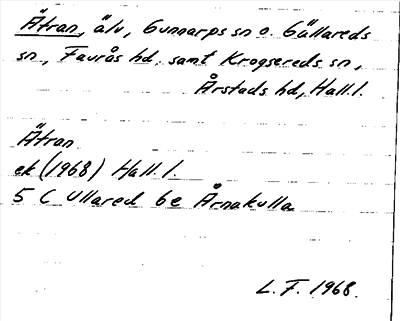 Ätran, älv, Gunnarps sn o. Gällareds
sn, Faurås hd. samt Krogsereds sn,
Årstads hd, Hall.l.
Ätran
ek (1968) Hall. l.
5 C Ullared 6 e Årnakulla
L. F. 1968.